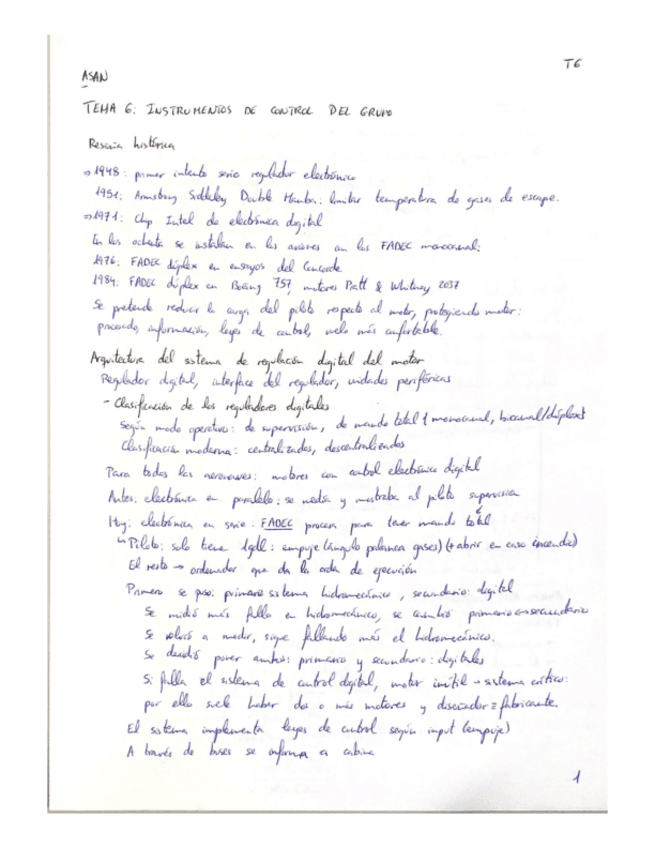 T6
ASAN
TEMA 6: INSTRUMENTOS DE CONTROL DEL GRUPO
Reseña histórica
⇒1948: primer intento serio regulador electrónico
1951: Armstrong Siddeley Double Mamba: limitar temperatura de gases de escape.
⇒1971: Chip Intel de electrónica digital
En los ochenta se instalan en los aviones con las FADEC monocanal:
1976: FADEC dúplex en ensayos del Concorde
1984: FADEC dúplex en Boeing 757, motores Pratt & Whitney 2037
Se pretende reducir la carga del piloto respecto al motor, protegiendo motor:
procesado, información, leyes de control, vuelo más confortable.
Arquitectura del sistema de regulación digital del motor
Regulador digital, interface del regulador, unidades periféricas
- Clasificación de los reguladores digitales
Según modo operativo: de supervisión, de mando total { monocanal, bicanal/dúplex
Clasificación moderna: centralizados, descentralizados
Para todas las aeronaves: motores con control electrónico digital
Antes: electrónica en paralelo: se medía y mostraba al piloto supervisión
Hoy: electrónica en serie: FADEC procesa para tener mando total
↳ Piloto: solo tiene 1gdl: empuje (ángulo palanca gases) (+ abrir en caso incendio)
El resto → ordenador que da la orden de ejecución
Primero se puso: primario sistema hidromecánico, secundario: digital
Se midió más fallo en hidromecánico, se cambió primario⇔secundario
Se volvió a medir, sigue fallando más el hidromecánico.
Se decidió poner ambos: primario y secundario: digitales
Si falla el sistema de control digital, motor inútil → sistema crítico:
por ello suele haber dos o más motores y diseñador ≠ fabricante.
El sistema implementa leyes de control según input (empuje)
A través de buses se informa a cabina
1